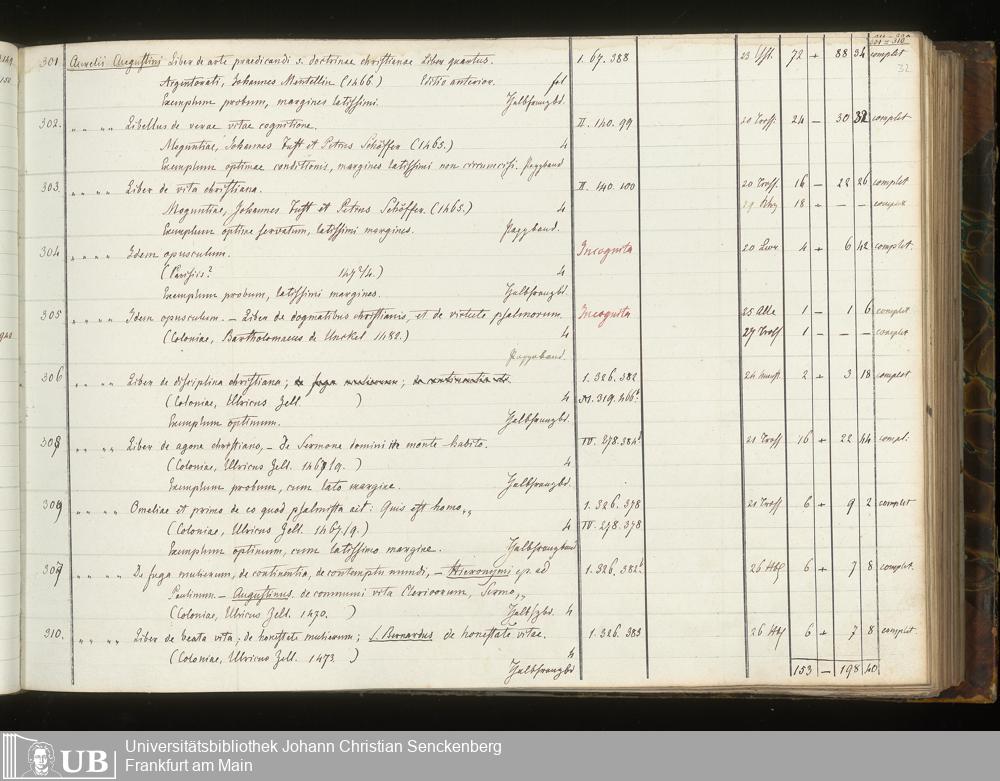 301-310
32
301. Aurelii Augustini Liber de arte praedicandi s. doctrinae christianae Liber quartus. 1. 67. 388 72 + 88 34 complet
Argentorati, Johannes Mentellin (1466.) Editio anterior. fol
Exemplum probum, margines latissimi. Halbfranzbd.
302. " " " " Libellus de verae vitae cognitione. II. 140. 99 24 — 30 32 complet
Moguntiae, Johannes Fust et Petrus Schöffer (1465.) 4
Exemplum optimae conditionis, margines latissimi non circumcisi. Pappband
303. " " " " Liber de vita christiana. II. 140. 100 16 — 22 26 complet
Moguntiae, Johannes Fust et Petrus Schöffer. (1465.) 4 18 + — — complet
Exemplum optime servatum, latissimi margines. Pappband.
304 " " " " Idem opusculum. Incognita 4 + 6 42 complet.
(Parisiis? 147 /4.) 4
Exemplum probum, latissimi margines. Halbfranzbd.
305 " " " " Idem opusculum. — Liber de dogmatibus christianis, et de virtute psalmorum. Incognita 25 1 — 1 6 complet
(Coloniae, Bartholomaeus de Unckel 1482.) 4 27 1 — — — complet
Pappband.
306 " " " " Liber de disciplina christiana; de fuga mulierum; de continentia 1. 326. 382 2 + 3 18 complet
(Coloniae, Ulricus Zell. ) 4 319. 466
Exemplum optimum. Halbfranzbd.
308 " " " " Liber de agone christiano, — De Sermone domini in monte habito. IV. 278. 384 16 + 22 44 compl:
(Coloniae, Ulricus Zell. 1467/9. ) 4
Exemplum probum, cum lato margine. Halbfranzbd.
309 " " " " Omeliae et primo de eo quod psalmista ait: Quis est homo,, 1. 326. 378 6 + 9 2 complet
(Coloniae, Ulricus Zell. 1467.19.) 4 IV. 278. 378
Exemplum optimum, cum latissimo margine. Halbfranzband
307 " " " " De fuga mulierum, de continentia, de contemptu mundi, — Hieronymi ep. ad 1. 326. 382 26 6 + 7 8 complet.
Paulinum — Augustinus de communi vita Clericorum, Sermo,,
(Coloniae, Ulricus Zell. 1470. ) 4
310. " " " " Liber de beata vita; de honestate mulierum; Bernardus de honestate vitae. 1. 326. 383 26 6 + 7 8 complet
(Coloniae, Ulricus Zell. 1473 ) 4
Halbfranzbd
153 — 198 40
UB
Universitätsbibliothek Johann Christian Senckenberg
Frankfurt am Main